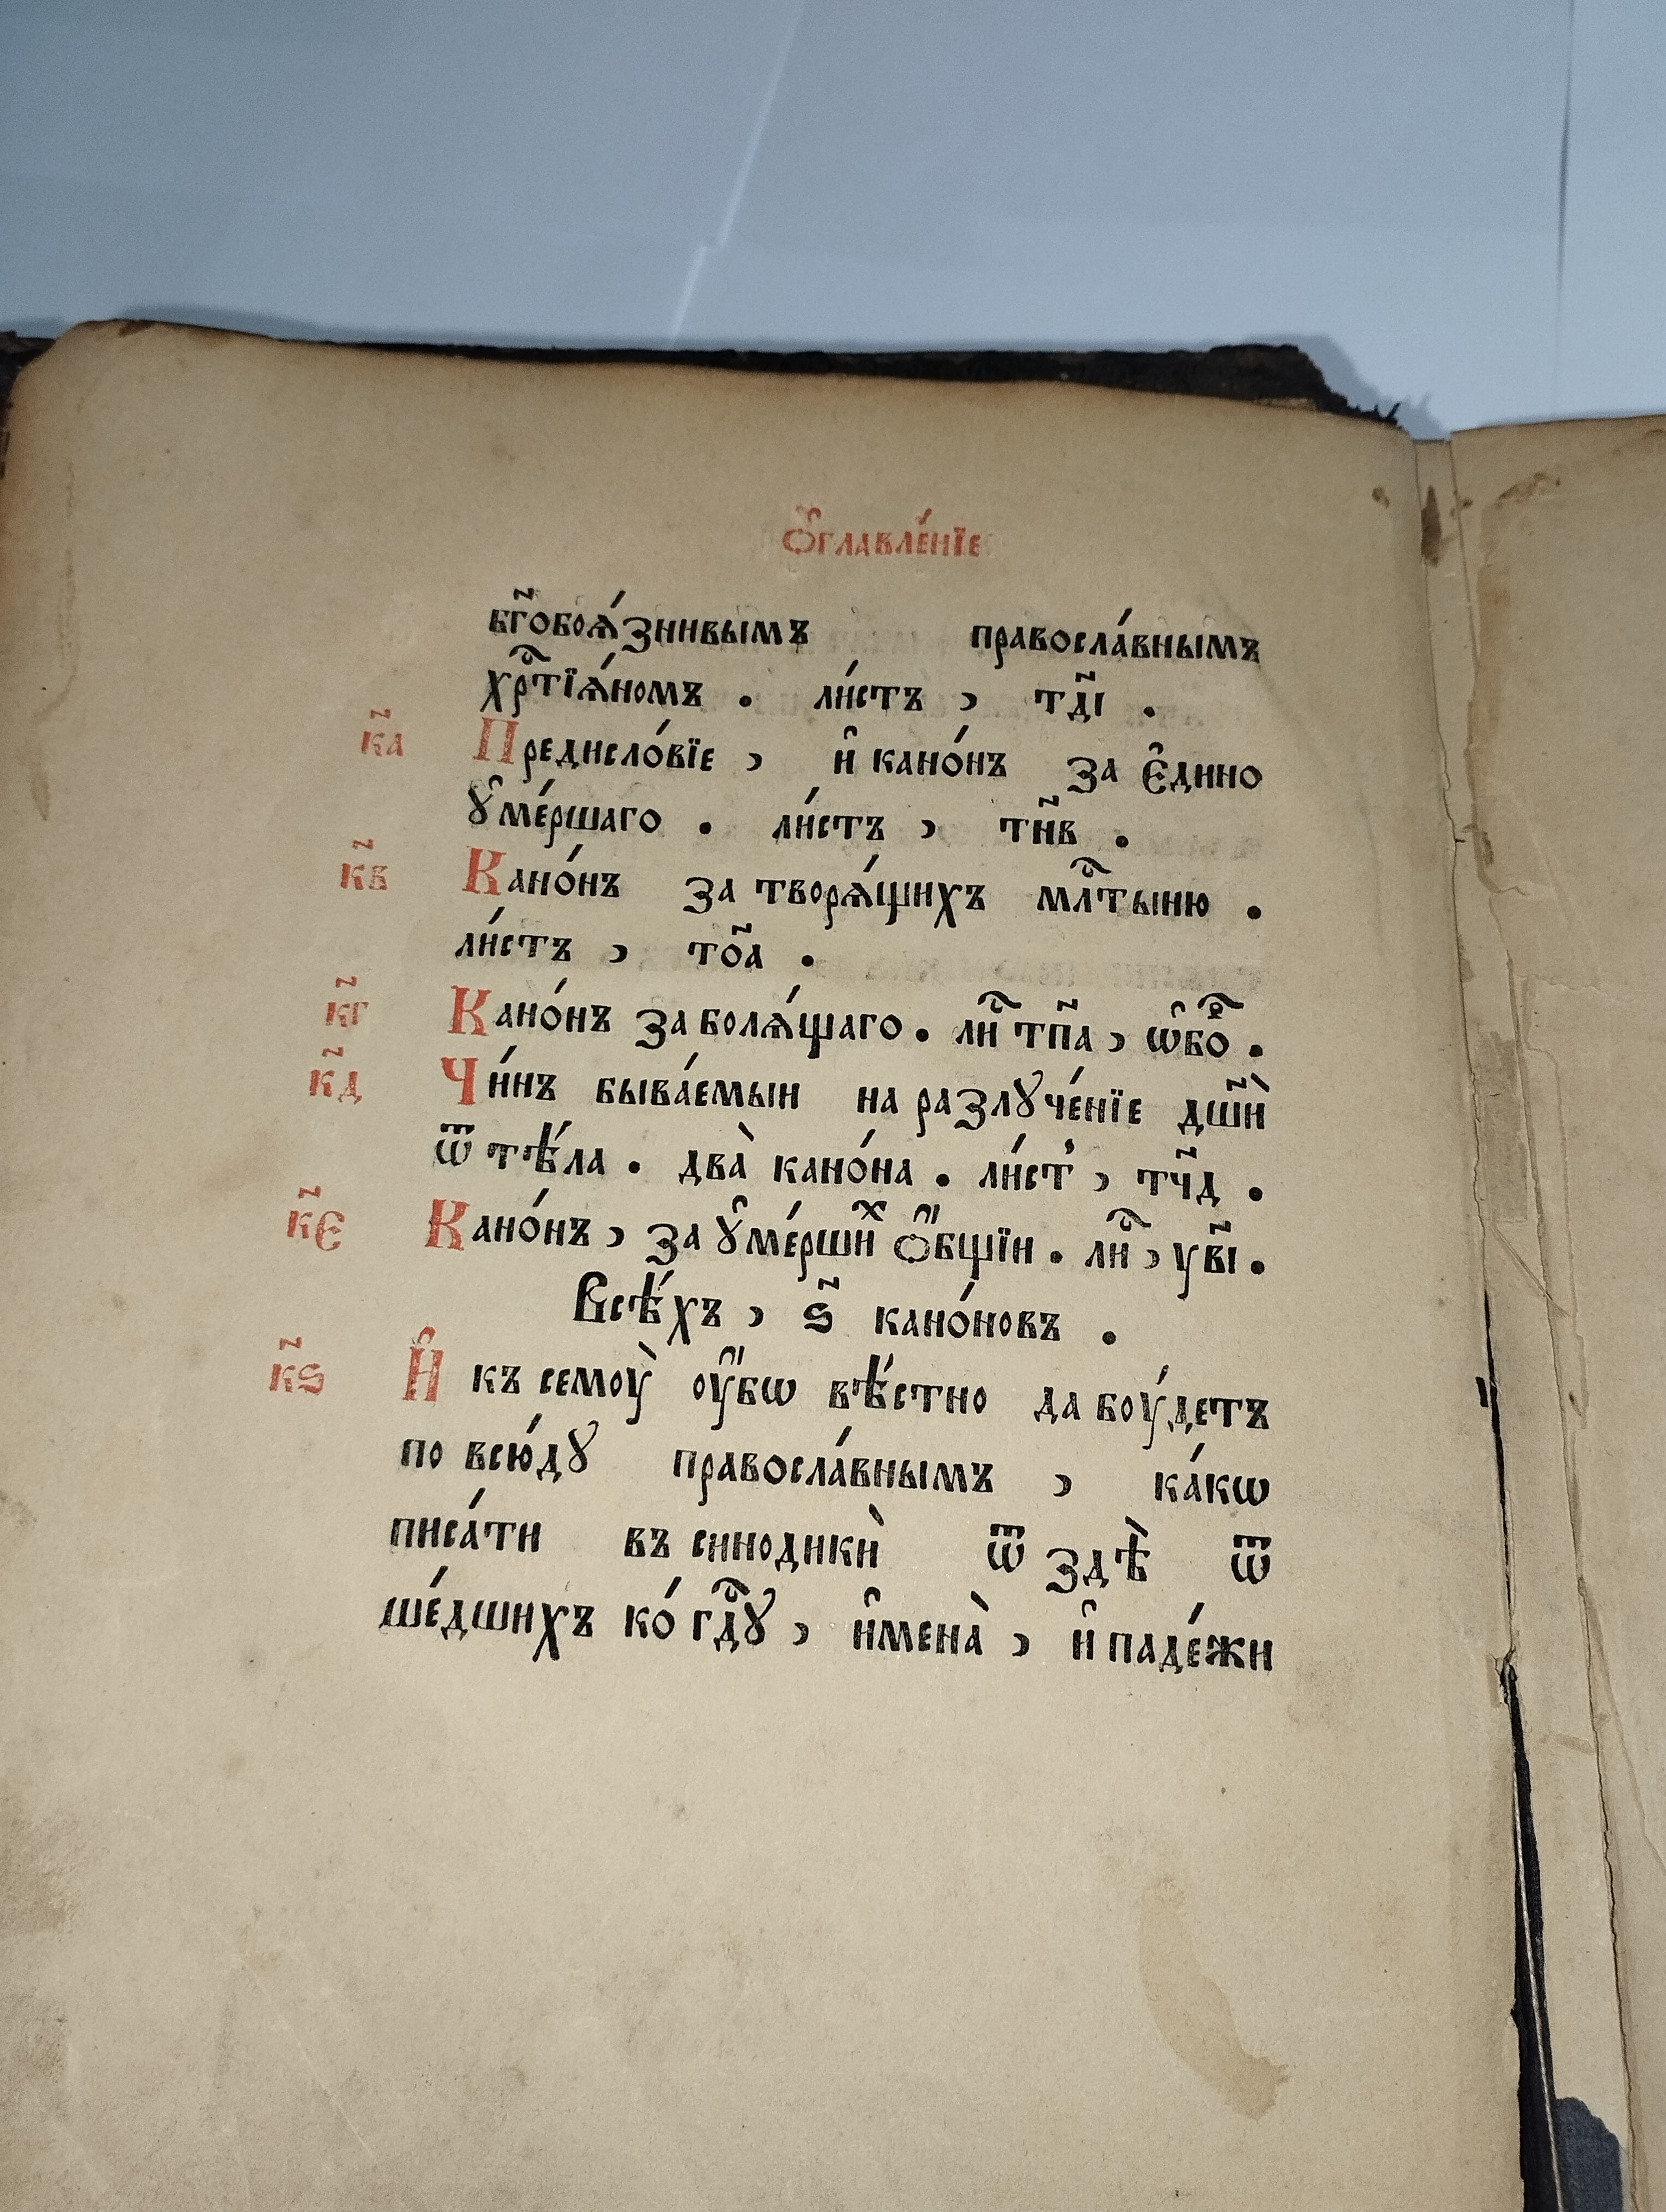 Ѻ҆главле́нїе
бг҃обоѧ́знивымъ правосла́внымъ
хрⷭ҇тїѧ́номъ . ли́стъ , тд҃і .
к҃а Предисло́вїе , и҆ кано́нъ за є҆дино
ꙋ҆ме́ршаго . ли́стъ , тн҃в .
к҃в Кано́нъ за творѧ́щихъ млⷭ҇тыню .
ли́стъ , то҃а .
к҃г Кано́нъ за болѧ́щаго . лиⷭ҇ тп҃а , ѡ҆боⷬ҇ .
к҃д Чи́нъ быва́емыи на разлꙋче́нїе дш҃ѝ
ѿ тѣ́ла . два̀ кано́на . ли́ст̾ , тч҃д .
к҃є Кано́нъ , за ꙋ҆ме́ршиⷯ ѻ҆́бщїи . лиⷭ҇ , ув҃і .
Всѣ́хъ , ѕ҃ кано́новъ .
к҃ѕ И҆ къ семоу̀ оу҆́бѡ вѣ́стно да боу́детъ
по всю́дꙋ правосла́внымъ , ка́кѡ
писа́ти въ синодикѝ ѿ здѣ̀ ѿ
ше́дшихъ ко́ гдⷭ҇ꙋ , и҆мена̀ , и҆ паде́жи